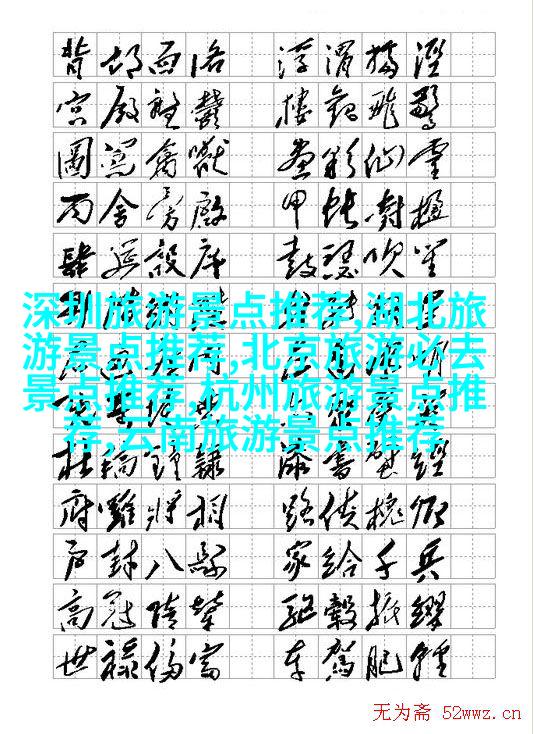 背邙面洛 浮渭據涇
宮殿盤鬱 樓觀飛驚
圖寫禽獸 畫彩仙靈
丙舍旁啟 甲帳對楹
肆筵設席 鼓瑟吹笙
深圳旅游景点推荐,湖北旅
游景点推荐,北京旅游必去
景点推荐,杭州旅游景点推
荐,云南旅游景点推荐
杜稿鍾隸 漆書壁經
府羅將相 路俠槐卿
戶封八縣 家給千兵
高冠陪輦 驅轂振纓
世祿侈富 車駕肥輕
无为斋 52wwz.cn